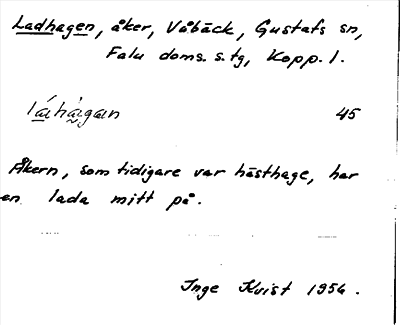 Ladhagen, åker, Våbäck, Gustafs sn,
Falu doms. s.tg, Kopp. l.
45
Åkern, som tidigare var hästhage, har
en lada mitt på.
Inge Kvist 1954.